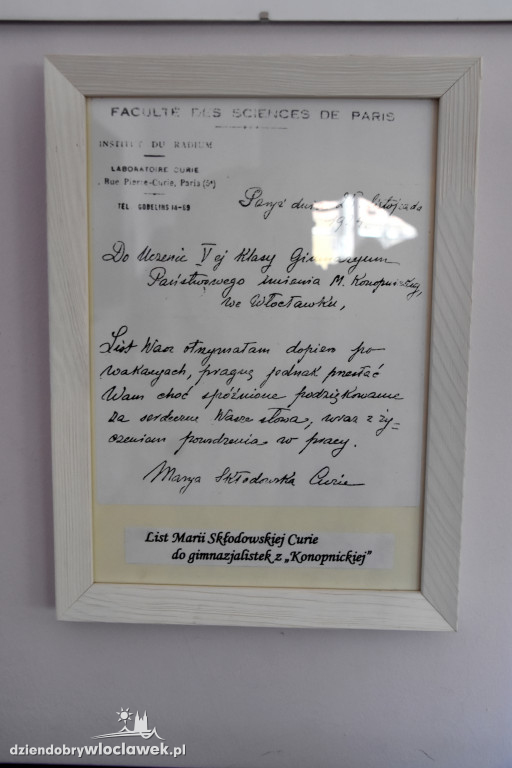 FACULTÉ DES SCIENCES DE PARIS
INSTITUT DU RADIUM
LABORATOIRE CURIE
Rue Pierre-Curie, Paris (5e)
TÉL. GOBELINS 14-69
Paryż dnia
Do Uczenic V ej Klasy Gimnazyum
Państwowego imienia M. Konopnickiej,
we Włocławku,
List Wasz otrzymałam dopiero po
wakacyach, pragnę jednak przesłać
Wam choć spóźnione podziękowanie
za serdeczne Wasze słowa, wraz z ży-
czeniami powodzenia w pracy.
Marya Skłodowska Curie
List Marii Skłodowskiej Curie
do gimnazjalistek z „Konopnickiej”
dziendobrywloclawek.pl